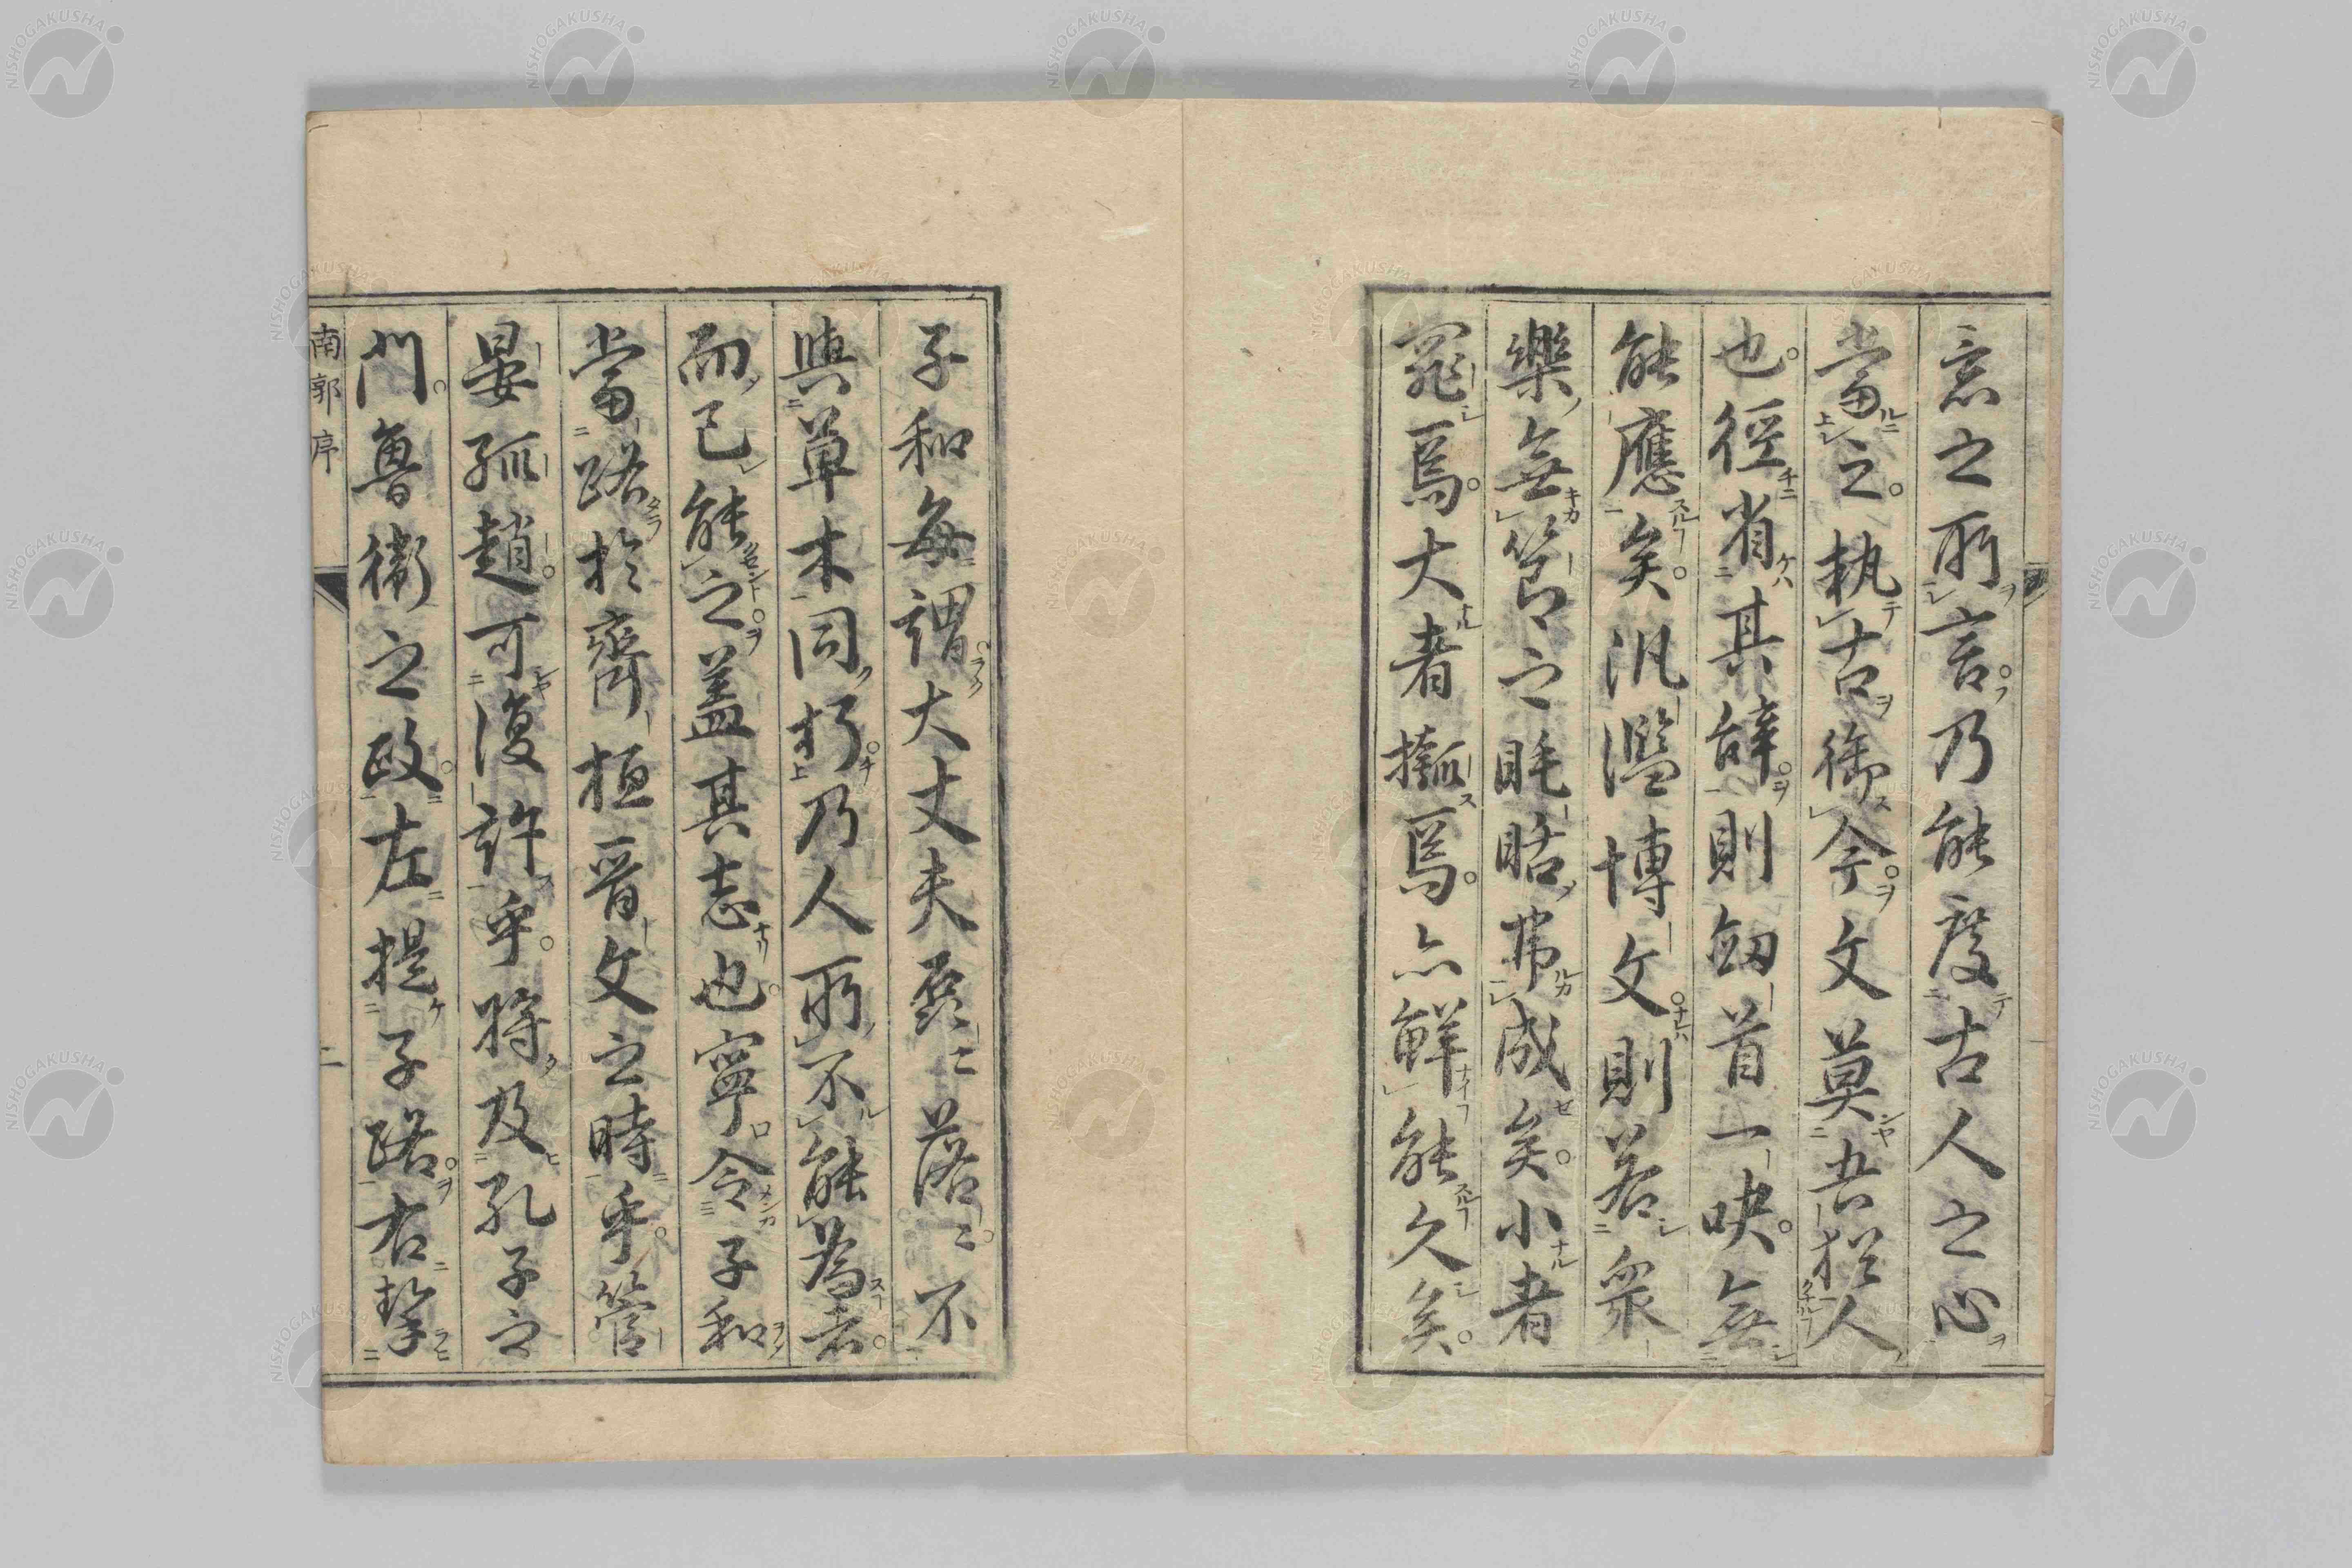 意之所言乃能度古人之心
當之執古御今文莫吾猶人
也徑省其辭則劔首一吷無
能應矣汎濫博文則若衆
樂無節之眊䀨弗成矣小者
窕焉大者摦焉亦鮮能久矣
子和每謂大丈夫磊〻落〻不
與草木同朽乃人所不能爲者
而已能之蓋其志也寧令子和
當路於齊桓晉文之時乎管
晏孤趙可復許乎將及孔子之
門魯衞之政左提子路右挈
南郭序
二
NISHOGAKUSHA